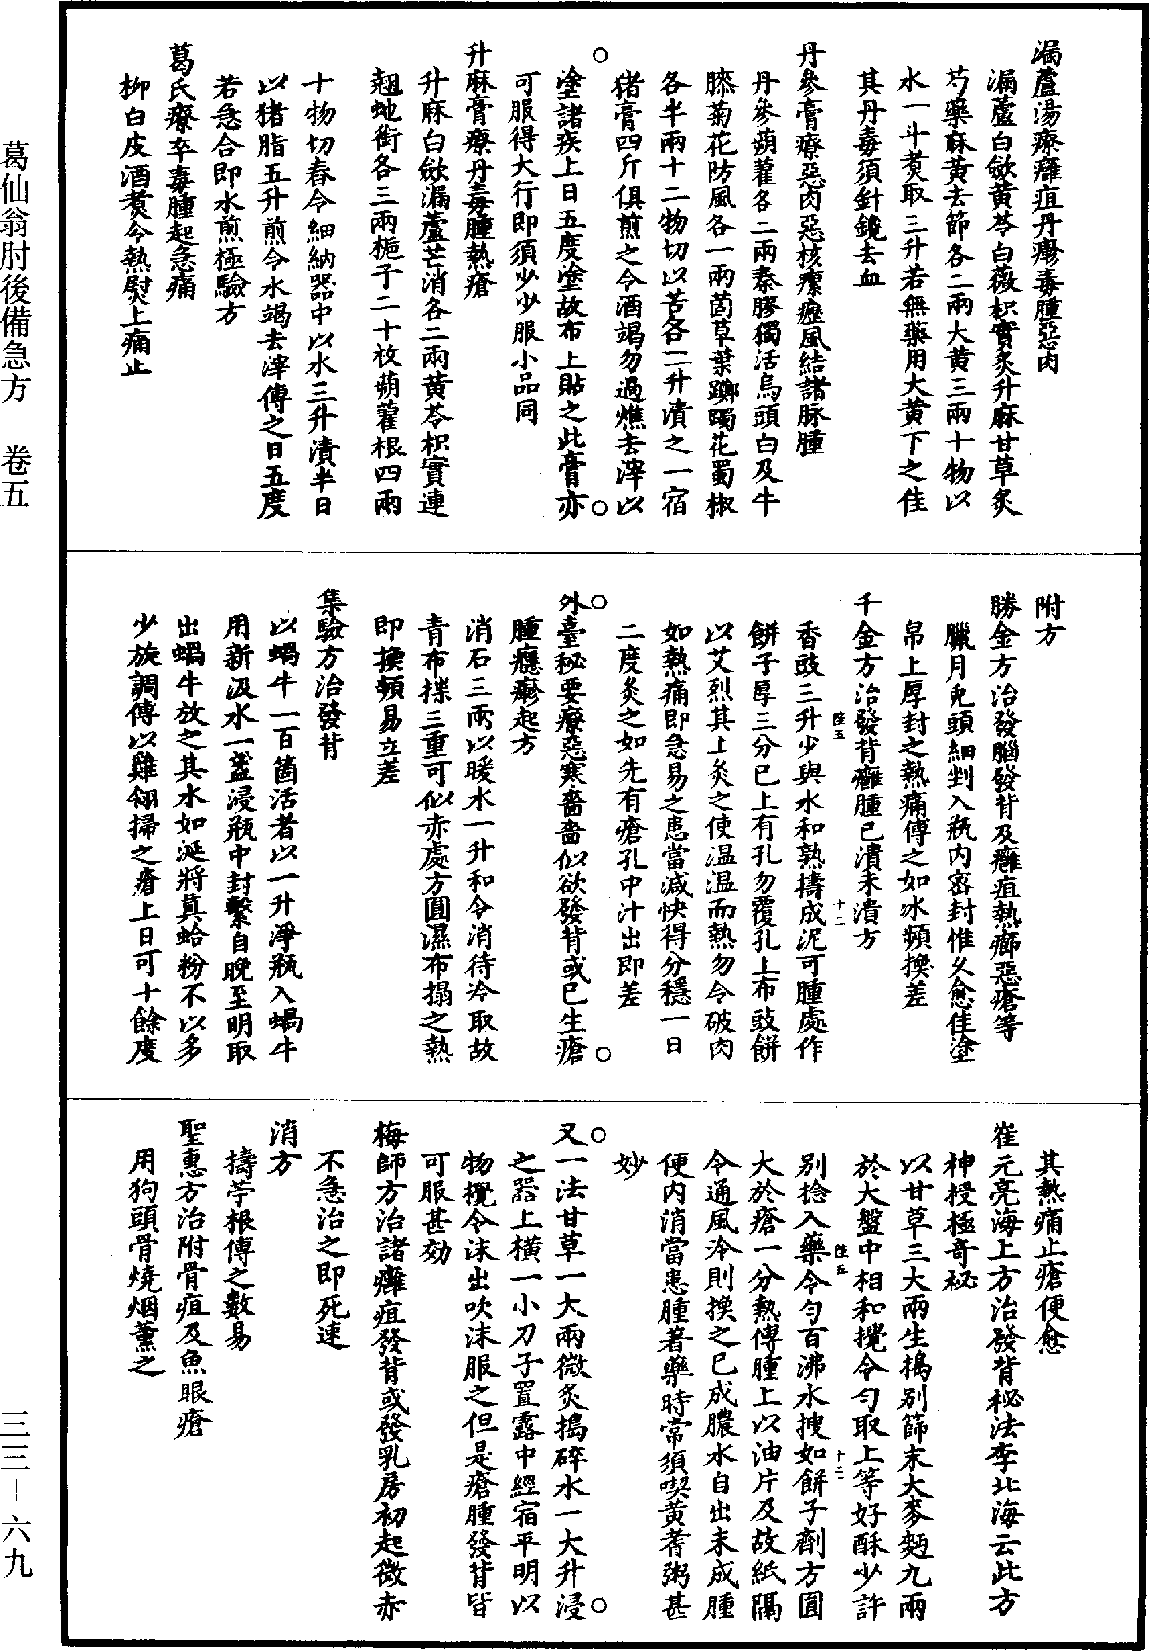 葛仙翁肘後備急方　卷五
漏蘆湯療癰疽丹㾻毒腫惡肉
漏蘆白斂黃芩白薇枳實炙升麻甘草炙
芍藥麻黃去節各二兩大黃三兩十物以
水一斗煑取三升若無藥用大黃下之佳
其丹毒須針鑱去血
丹參膏療惡肉惡核瘰癧風結諸脉腫
丹參蒴藋各二兩秦膠獨活烏頭白及牛
膝菊花防風各一兩䒽草葉躑躅花蜀椒
各半兩十二物切以苦各二升漬之一宿
猪膏四斤俱煎之令酒竭勿過燋去滓以
塗諸疾上日五度塗故布上貼之此膏亦
可服得大行即須少少服小品同
升麻膏療丹毒腫熱瘡
升麻白斂漏蘆芒消各二兩黃芩枳實連
翹虵銜各三兩梔子二十枚蒴藋根四兩
十物切舂令細納器中以水三升漬半日
以猪脂五升煎令水竭去滓傅之日五度
若急合即水煎極驗方
葛氏療卒毒腫起急痛
柳白皮酒煑令熱熨上痛止
附方
勝金方治發腦發背及癰疽熱癤惡瘡等
臘月兔頭細剉入瓶內密封惟久愈佳塗
帛上厚封之熱痛傅之如冰頻換差
千金方治發背癰腫已潰未潰方
香豉三升少與水和熟擣成泥可腫處作
餅子厚三分已上有孔勿覆孔上布豉餅
以艾烈其上灸之使温温而熱勿令破肉
如熱痛即急易之患當減快得分穩一日
二度灸之如先有瘡孔中汁出即差
外臺秘要療惡寒嗇嗇似欲發背或已生瘡
腫癮𤺋起方
消石三兩以暖水一升和令消待冷取故
青布揲三重可似赤處方圓濕布搨之熱
即換頓易立差
集驗方治發背
以蝸牛一百箇活者以一升淨瓶入蝸牛
用新汲水一盞浸瓶中封繫自晚至明取
出蝸牛放之其水如涎將真蛤粉不以多
少旋調傅以雞翎掃之瘡上日可十餘度
其熱痛止瘡便愈
崔元亮海上方治發背秘法李北海云此方
神授極奇秘
以甘草三大兩生搗別篩末大麥麵九兩
於大盤中相和攪令勻取上等好酥少許
別捻入藥令勻百沸水搜如餅子劑方圓
大於瘡一分熱傅腫上以油片及故紙隔
令通風冷則換之已成膿水自出未成腫
便內消當患腫著藥時常須喫黃蓍粥甚
妙
又一法甘草一大兩微炙搗碎水一大升浸
之器上橫一小刀子置露中經宿平明以
物攪令沫出吹沫服之但是瘡腫發背皆
可服甚効
梅師方治諸癰疽發背或發乳房初起微赤
不急治之即死速
消方
擣苧根傅之數易
聖惠方治附骨疽及魚眼瘡
用狗頭骨燒烟薰之
陸五
十二
陸五
十三
三三－六九